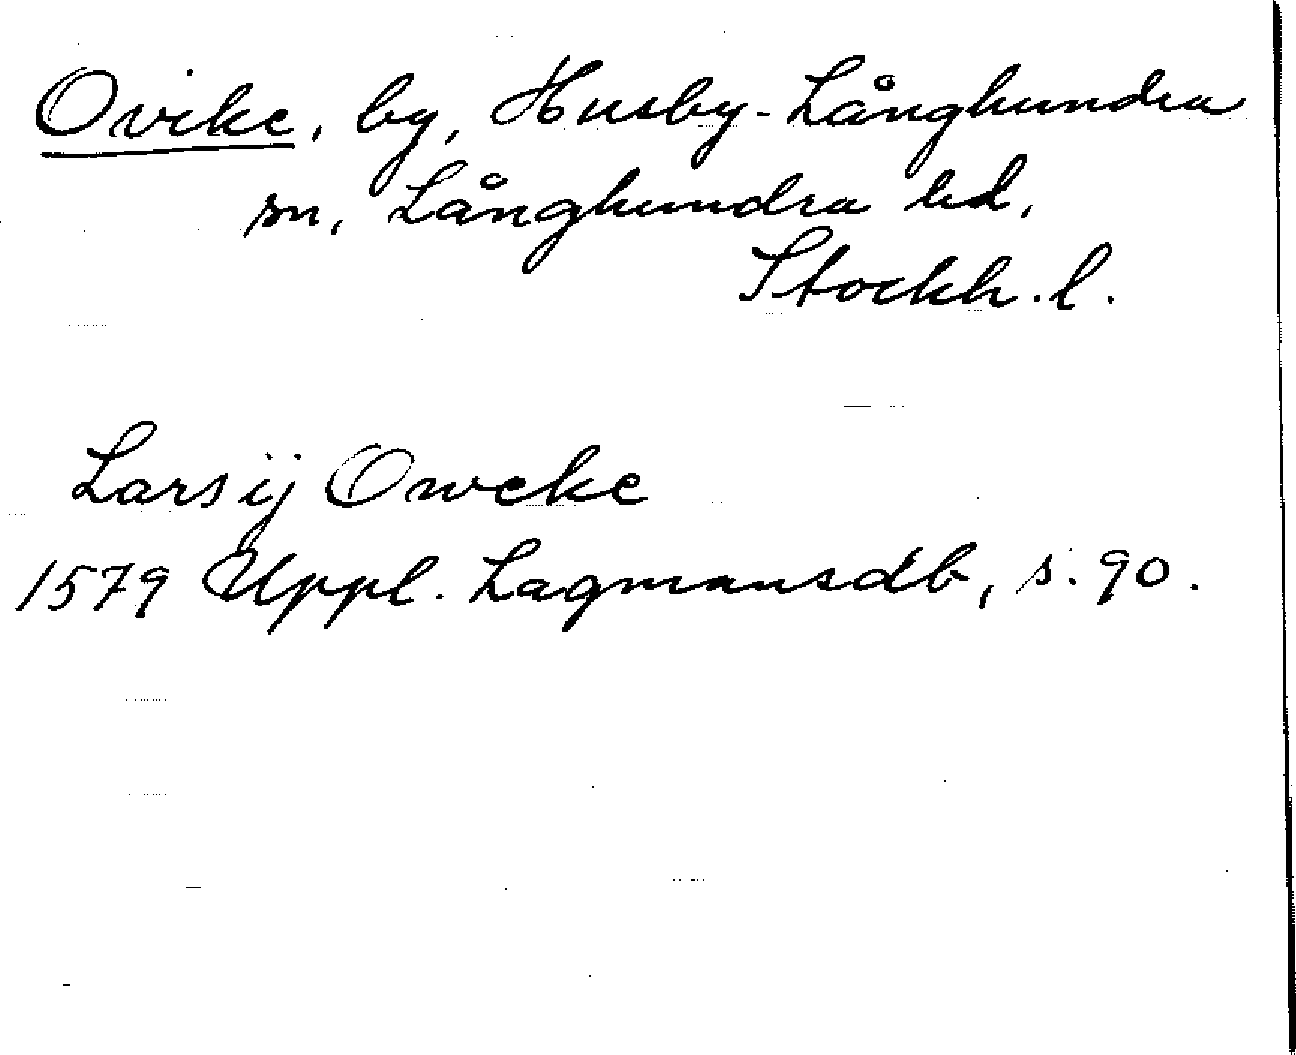 Ovike, by, Husby-Långhundra
sn, Långhundra hd,
Stockh. l.
Lars ij Oweke
1579 Uppl. Lagmansdb, s. 90.